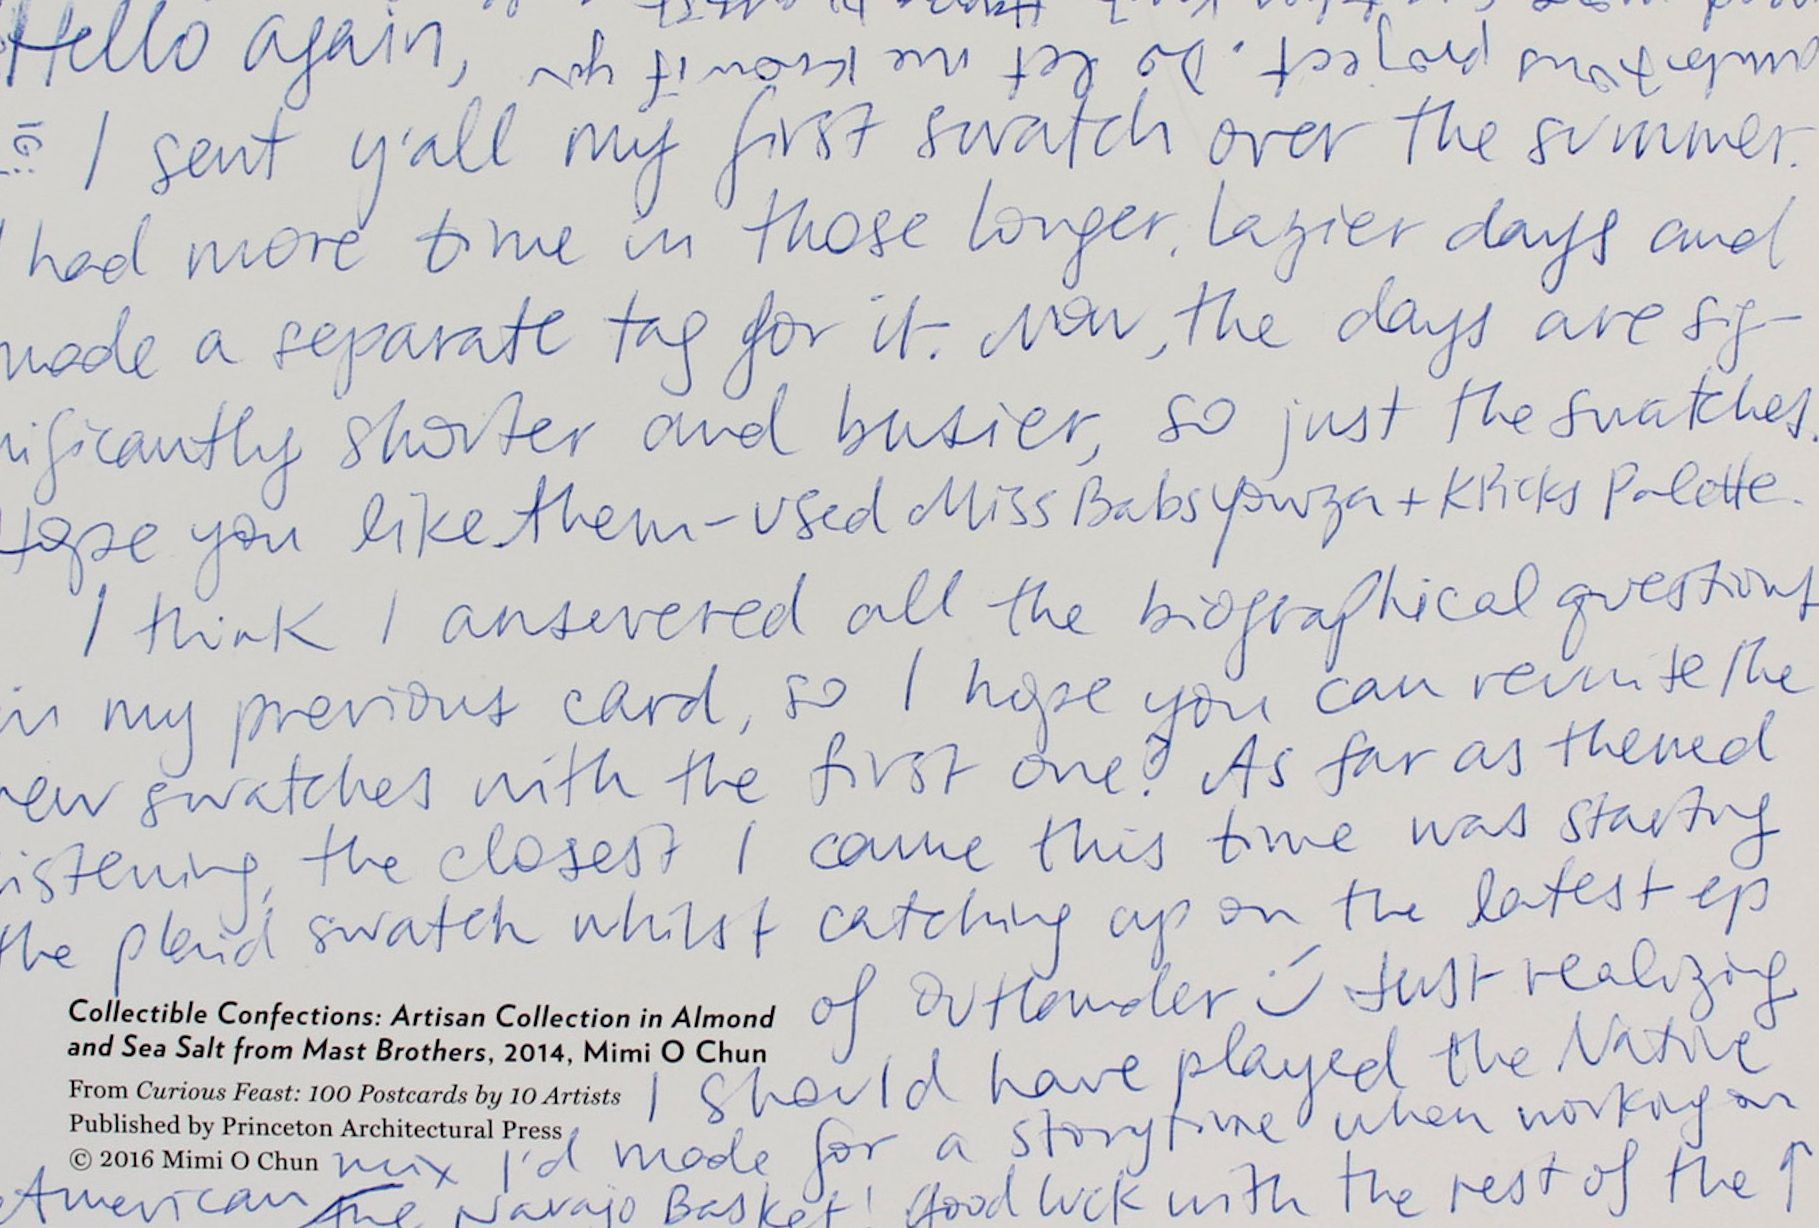 Hello again,
I sent y'all my first swatch over the summer.
I had more time in those longer, lazier days and
made a separate tag for it. Now, the days are sig-
nificantly shorter and busier, so just the swatches.
Hope you like them - used Miss Babs Yowza + KPicks Palette.
I think I answered all the biographical questions
in my previous card, so I hope you can reunite the
new swatches with the first one? As far as themed
listening, the closest I came this time was starting
the plaid swatch whilst catching up on the latest ep
of Outlander :) Just realizing
I should have played the Native
American mix I'd made for a storytime when working on
the Navajo Basket! Good luck with the rest of the ↑
ambitious project. Do let me know if you
Collectible Confections: Artisan Collection in Almond
and Sea Salt from Mast Brothers, 2014, Mimi O Chun
From Curious Feast: 100 Postcards by 10 Artists
Published by Princeton Architectural Press
© 2016 Mimi O Chun